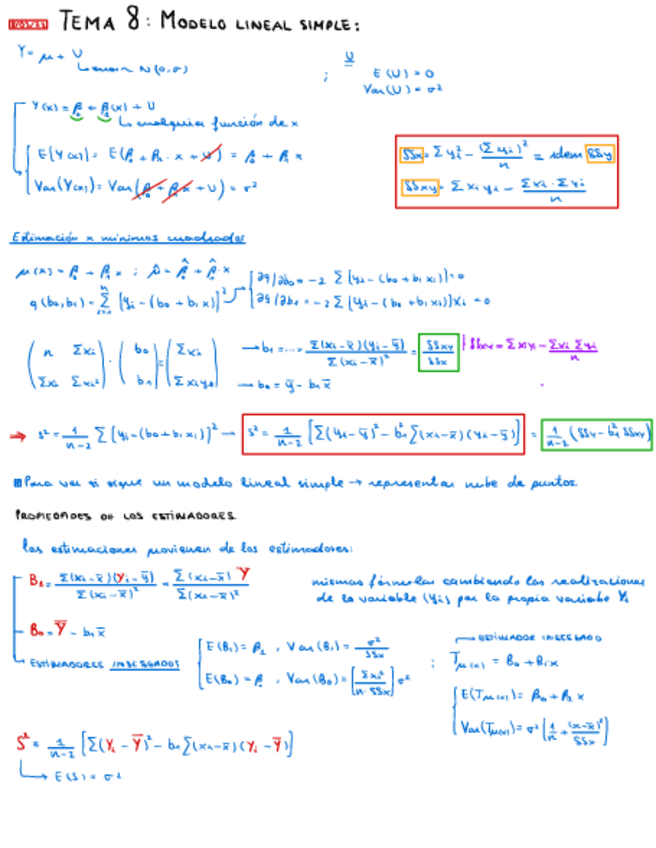 TEMA 8: MODELO LINEAL SIMPLE:
Y = μ + U
error N(0,σ)
; U E(U) = 0
Var(U) = σ²
Y(x) = β₀ + β₁(x) + U
cualquier función de x
E[Y(x)] = E(β₀ + β₁·x + U) = β₀ + β₁x
Var(Y(x)) = Var(β₀ + β₁x + U) = σ²
SSx = Σyi² - (Σyi)²/n = idem SSy
SSxy = Σxiyi - Σxi·Σyi/n
Estimación x mínimos cuadrados
μ(x) = β₀ + β₁x ; μ̂ = β̂₀ + β̂₁·x
q(b₀,b₁) = Σ [yi - (b₀ + b₁x)]²
∂q/∂b₀ = -2 Σ [yi - (b₀ + b₁xi)] = 0
∂q/∂b₁ = -2 Σ [yi - (b₀ + b₁xi)]xi = 0
(n Σxi) · (b₀) = (Σxi)
(Σxi Σxi²) (b₁) (Σxiyi)
→ b₁ = .... = Σ(xi-x̄)(yi-ȳ)/Σ(xi-x̄)² = SSxy/SSx
SSxy = Σxiyi - Σxi Σyi/n
→ b₀ = ȳ - b₁x̄
⇒ s² = 1/n-2 Σ [yi-(b₀+b₁xi)]² → s² = 1/n-2 [Σ(yi-ȳ)² - b₁² Σ(xi-x̄)(yi-ȳ)] = 1/n-2 (SSy - b₁² SSxy)
Para ver si sigue un modelo lineal simple → representar nube de puntos.
PROPIEDADES DE LOS ESTIMADORES.
Las estimaciones provienen de los estimadores:
B₁ = Σ(xi-x̄)(Yi-ȳ)/Σ(xi-x̄)² = Σ(xi-x̄) Y/Σ(xi-x̄)²
mismas fórmulas cambiando las realizaciones
de la variable (yi) por la propia variable Yi
B₀ = Ȳ - b₁x̄
ESTIMADORES INSESGADOS
E(B₁) = β₁ , Var(B₁) = σ²/SSx
E(B₀) = β₀ , Var(B₀) = [Σxi²/n·SSx] σ²
ESTIMADOR INSESGADO
; Tμ(x) = B₀ + B₁x
E(Tμ(x)) = β₀ + β₁x
Var(Tμ(x)) = σ² [1/n + (x-x̄)²/SSx]
S² = 1/n-2 [Σ(Yi - Ȳ)² - b₁ Σ(xi-x̄)(Yi - Ȳ)]
E(S) = σ²